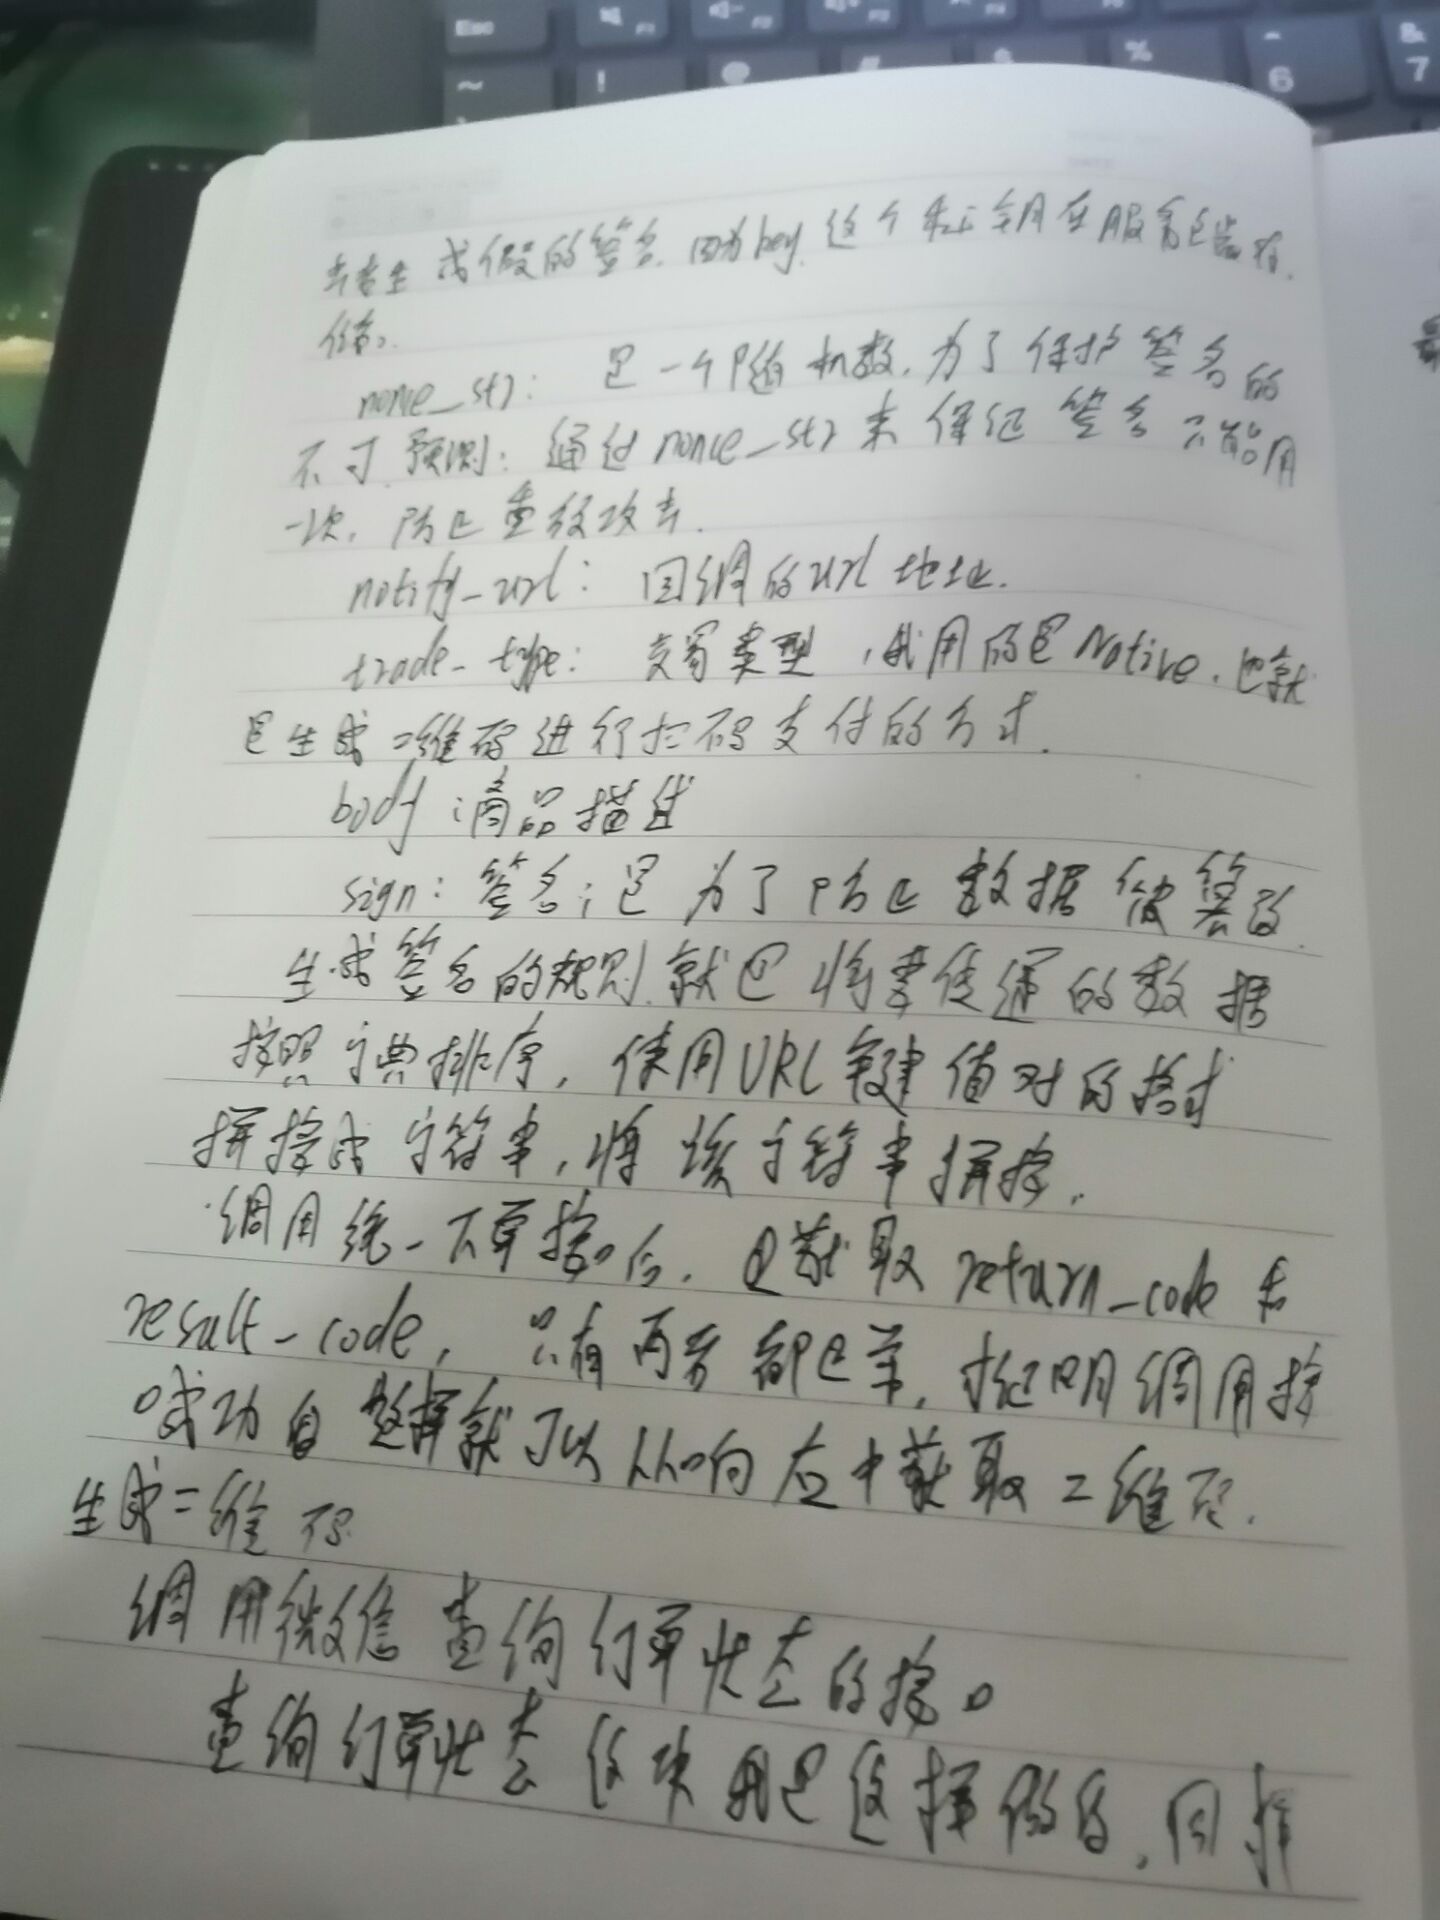 Esc F1 F2 F3 F4
~ ! @ # $ % ^ 6 & 7
生成假的签名. 因为key 这个私钥在服务器存
储。
nonce_str: 是一个随机数. 为了保护签名的
不可预测: 通过nonce_str来保证签名只能用
一次, 防止重放攻击.
notify_url: 回调的url地址.
trade_type: 交易类型, 我用的是Native. 也就
是生成二维码进行扫码支付的方式.
body: 商品描述
sign: 签名; 是为了防止数据被篡改.
生成签名的规则.就是将要传递的数据
按照字典排序, 使用URL键值对的格式
拼接成字符串, 将该字符串拼接.
调用统一下单接口后. 是获取return_code和
result_code, 只有两者都是, 才证明调用接
口成功 这样就可以从响应中获取二维码.
生成二维码
调用微信查询订单状态的接口
查询订单状态这块我是这样做的, 同样
最